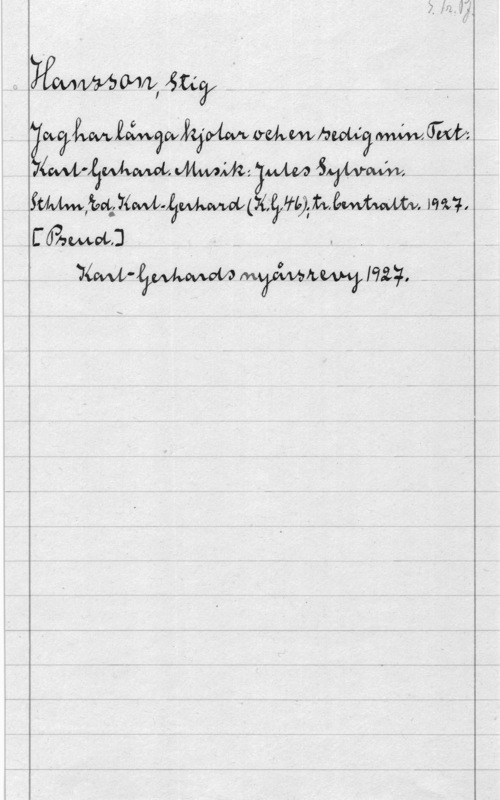 Hansson, Stig
Jag har långa kjolar och en sedig min. Text:
Karl-Gerhard. Musik: Jules Sylvain.
Sthlm, Ed. Karl-Gerhard (K.G. 46), tr. Centraltr. 1927.
[Pseud.]
Karl-Gerhards nyårsrevy 1927.